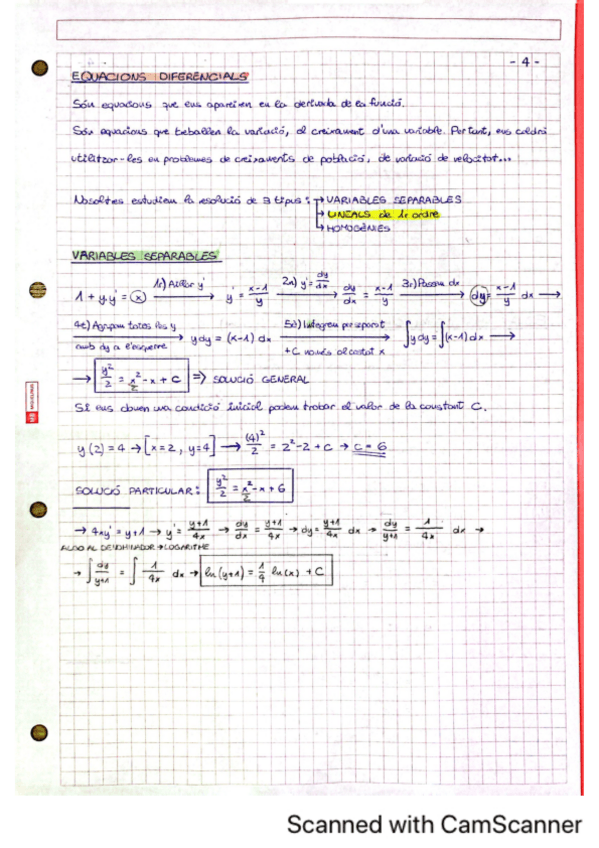 - 4 -
EQUACIONS DIFERENCIALS
Són equacions que ens apareixen en la derivada de la funció.
Són equacions que treballen la variació, el creixament d'una variable. Per tant, ens caldrà
utilitzar-les en problemes de creixaments de població, de variació de velocitat...
Nosaltres estudiem la resolució de 3 tipus: → VARIABLES SEPARABLES
→ LINEALS de 1r ordre
→ HOMOGÈNIES
VARIABLES SEPARABLES
1 + y·y' = x 1r) Aïllar y' → y' = x-1/y 2n) y' = dy/dx → dy/dx = x-1/y 3r) Passem dx → dy = x-1/y dx →
4t) Agrupem totes les y amb dy a l'esquerre → y dy = (x-1) dx 5è) Integrem per separat +C només al costat x → ∫y dy = ∫(x-1) dx →
→ y²/2 = x²/2 - x + C => SOLUCIÓ GENERAL
Si ens donen una condició inicial podem trobar el valor de la constant C.
y(2) = 4 → [x=2, y=4] → (4)²/2 = 2² - 2 + C → C = 6
SOLUCIÓ PARTICULAR: y²/2 = x²/2 - x + 6
→ 4xy' = y+1 → y' = y+1/4x → dy/dx = y+1/4x → dy = y+1/4x dx → dy/y+1 = 1/4x dx →
ALGO AL DENOMINADOR → LOGARITME
→ ∫ dy/y+1 = ∫ 1/4x dx → ln(y+1) = 1/4 ln(x) + C
Scanned with CamScanner